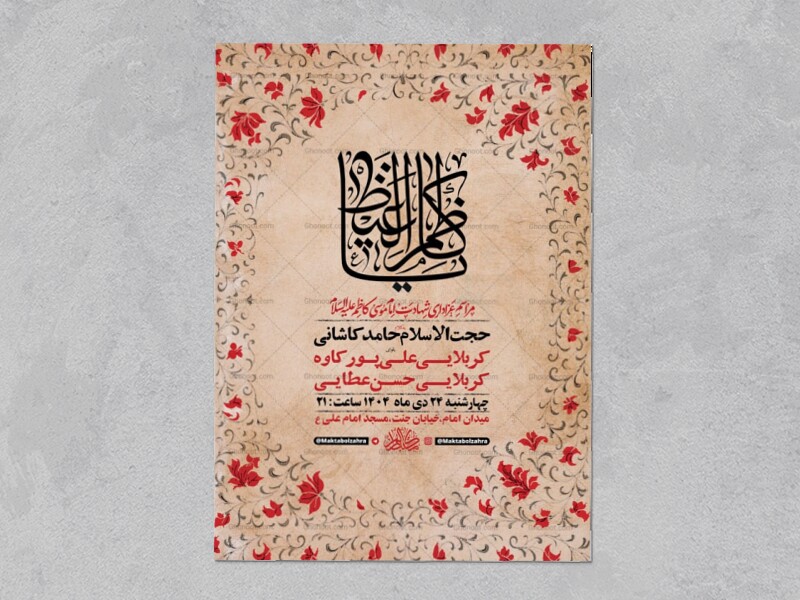 یا کاظم الغیظ
مراسم عزاداری شهادت امام موسی کاظم علیه السلام
حجت الاسلام حامد کاشانی
کربلایی علی پورکاوه
کربلایی حسن عطایی
چهارشنبه ۲۴ دی ماه ۱۴۰۴ ساعت: ۲۱
میدان امام، خیابان جنت، مسجد امام علی ع
@Maktabolzahra @Maktabolzahra